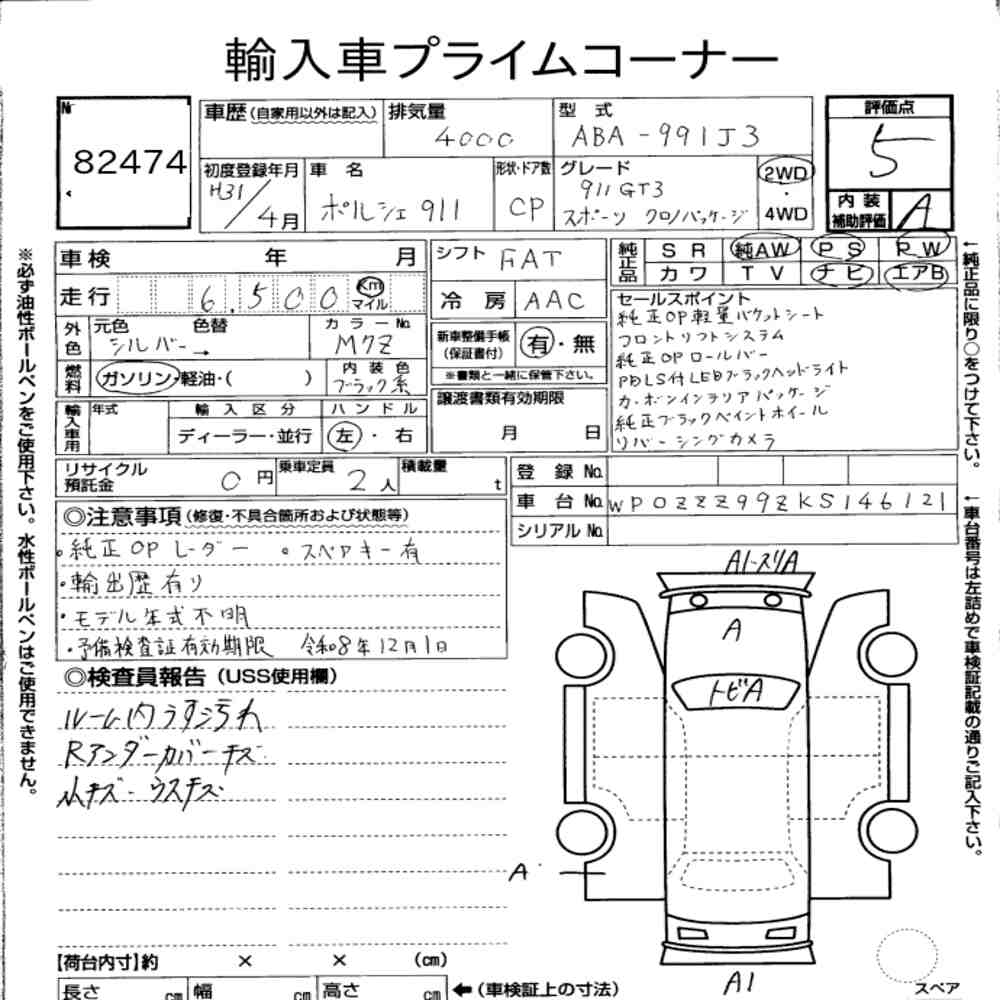 輸入車プライムコーナー
№ 82474
車歴(自家用以外は記入) 排気量 4000 型式 ABA-991J3 評価点 5
初度登録年月 H31/4月 車名 ポルシェ 911 形状・ドア数 CP グレード 911 GT3 スポーツ クロノパッケージ 2WD・4WD 内装補助評価 A
車検 年 月 シフト FAT 純正品 SR 純AW PS PW
走行 6,500 Km マイル 冷房 AAC カワ TV ナビ エアB
外色 元色 シルバー 色替 → カラーNo. M7Z 新車整備手帳(保証書付) 有・無
※書類と一緒に保管下さい。
燃料 ガソリン・軽油・( ) 内装色 ブラック系
輸入車用 年式 輸入区分 ディーラー・並行 ハンドル 左・右 譲渡書類有効期限 月 日
セールスポイント
純正OP軽量バケットシート
フロントリフトシステム
純正OPロールバー
PDLS付LEDブラックヘッドライト
カーボンインテリアパッケージ
純正ブラックペイントホイール
リバーシングカメラ
リサイクル預託金 0円 乗車定員 2人 積載量 t 登録No.
車台No. WP0ZZZ99ZKS146121
シリアルNo.
◎注意事項(修復・不具合箇所および状態等)
・純正OPレーダー ・スペアキー有
・輸出歴有り
・モデル年式不明
・予備検査証有効期限 令和8年12月1日
◎検査員報告(USS使用欄)
ルーム内うすい汚れ
Rアンダーカバーキズ
小キズ・ウスキズ
A1・スリA
A
トビA
A
A1
スペア
【荷台内寸】約 × × (cm)
長さ cm 幅 cm 高さ cm ←(車検証上の寸法)
※必ず油性ボールペンをご使用下さい。水性ボールペンはご使用できません。
←純正品に限り○をつけて下さい。
←車台番号は左詰めで車検証記載の通りご記入下さい。